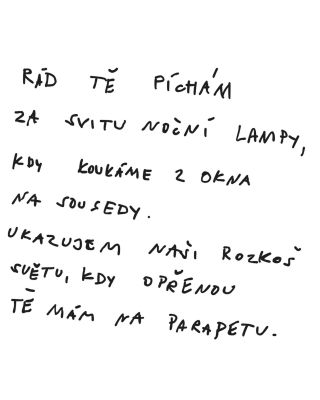 RÁD TĚ PÍCHÁM
ZA SVITU NOČNÍ LAMPY,
KDY KOUKÁME Z OKNA
NA SOUSEDY.
UKAZUJEM NAŠI ROZKOŠ
SVĚTU, KDY OPŘENOU
TĚ MÁM NA PARAPETU.